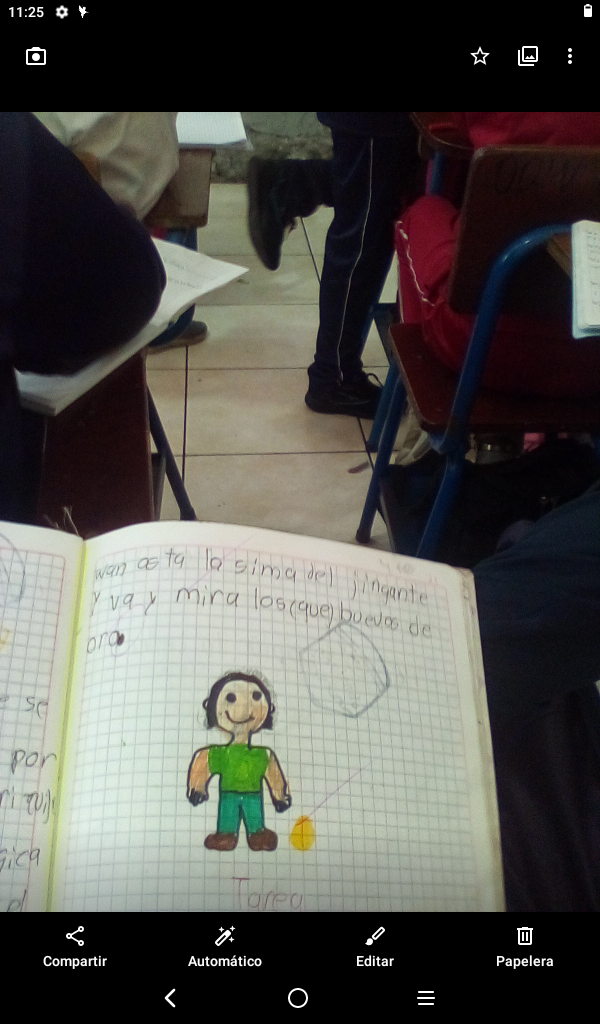 11:25
wan asta la sima del jingante
y va y mira los (que) buevos de
oro
e se
por
gica
Tarea
Compartir
Automático
Editar
Papelera